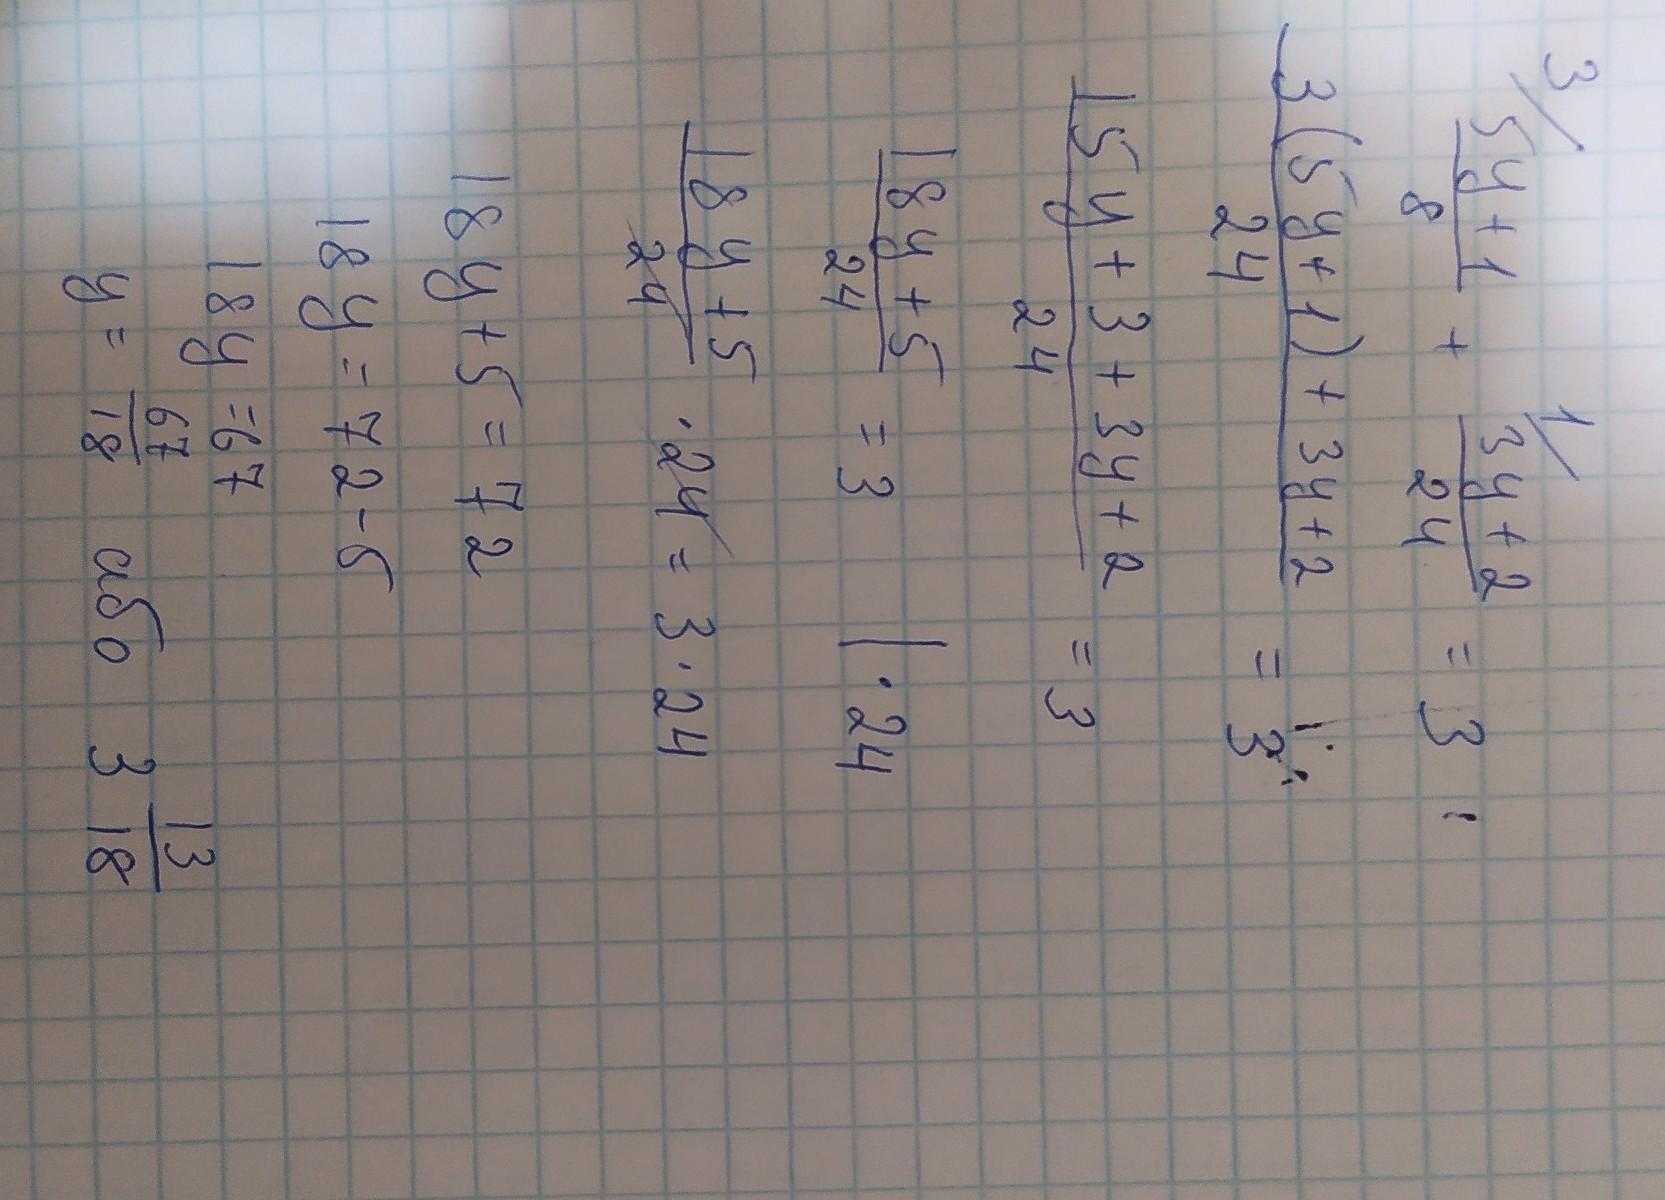 3/ 1/
(5y+1)/8 + (3y+2)/24 = 3 ;
(3(5y+1)+3y+2)/24 = 3 ;
(15y+3+3y+2)/24 = 3
(18y+5)/24 = 3 | ·24
(18y+5)/24 ·24 = 3·24
18y+5=72
18y=72-5
18y=67
y= 67/18 або 3 13/18